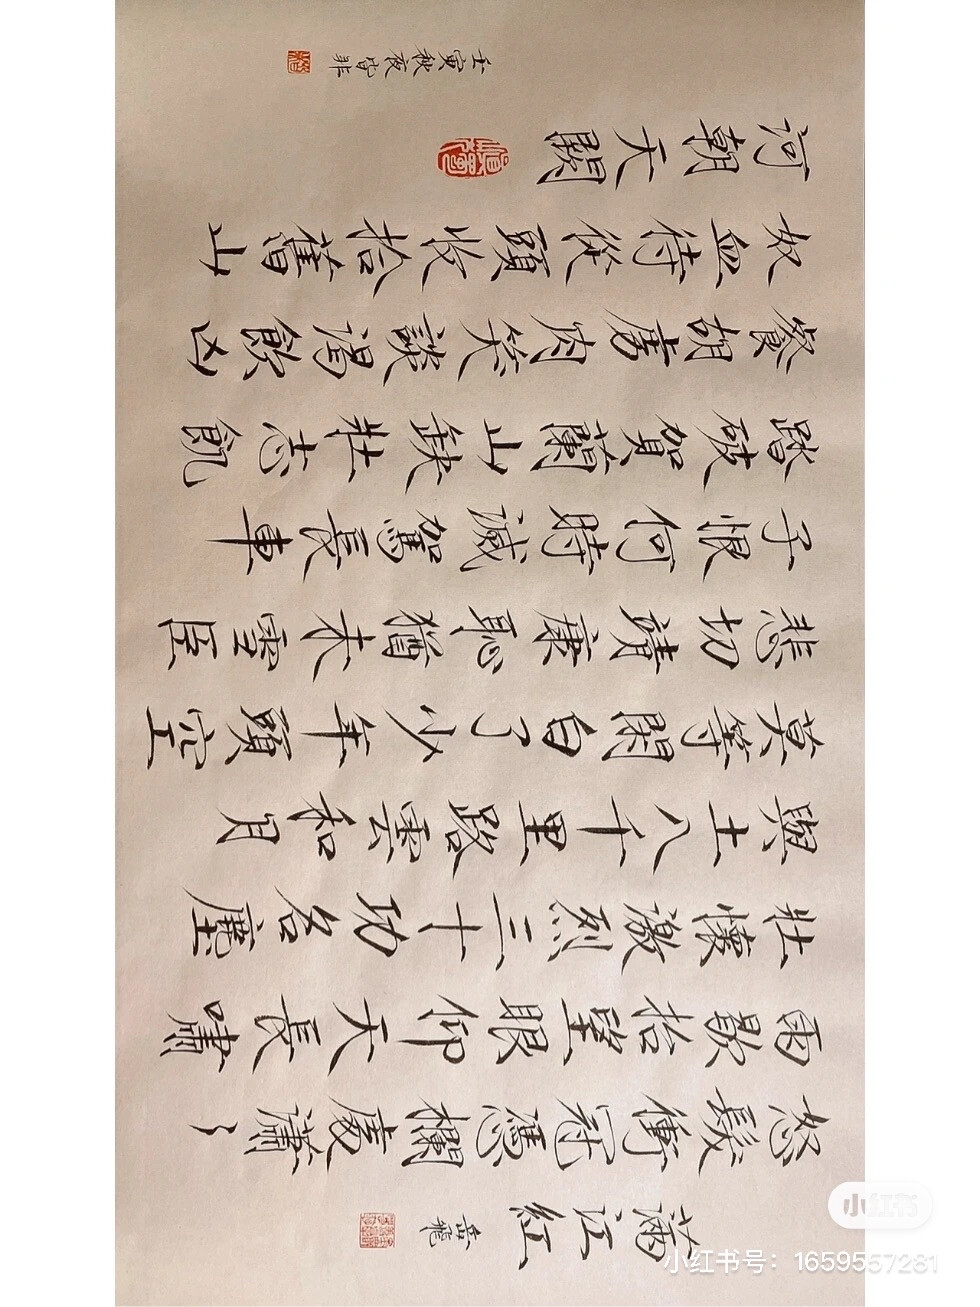 滿江紅 岳飛
怒髮衝冠憑欄處瀟〻
雨歇抬望眼仰天長嘯
壯懷激烈三十功名塵
與土八千里路雲和月
莫等閑白了少年頭空
悲切靖康恥猶未雪臣
子恨何時滅駕長車
踏破賀蘭山缺壯志飢
餐胡虜肉笑談渴飲凶
奴血待從頭收拾舊山
河朝天闕
壬寅秋夜
小红书
小红书号：1659557281